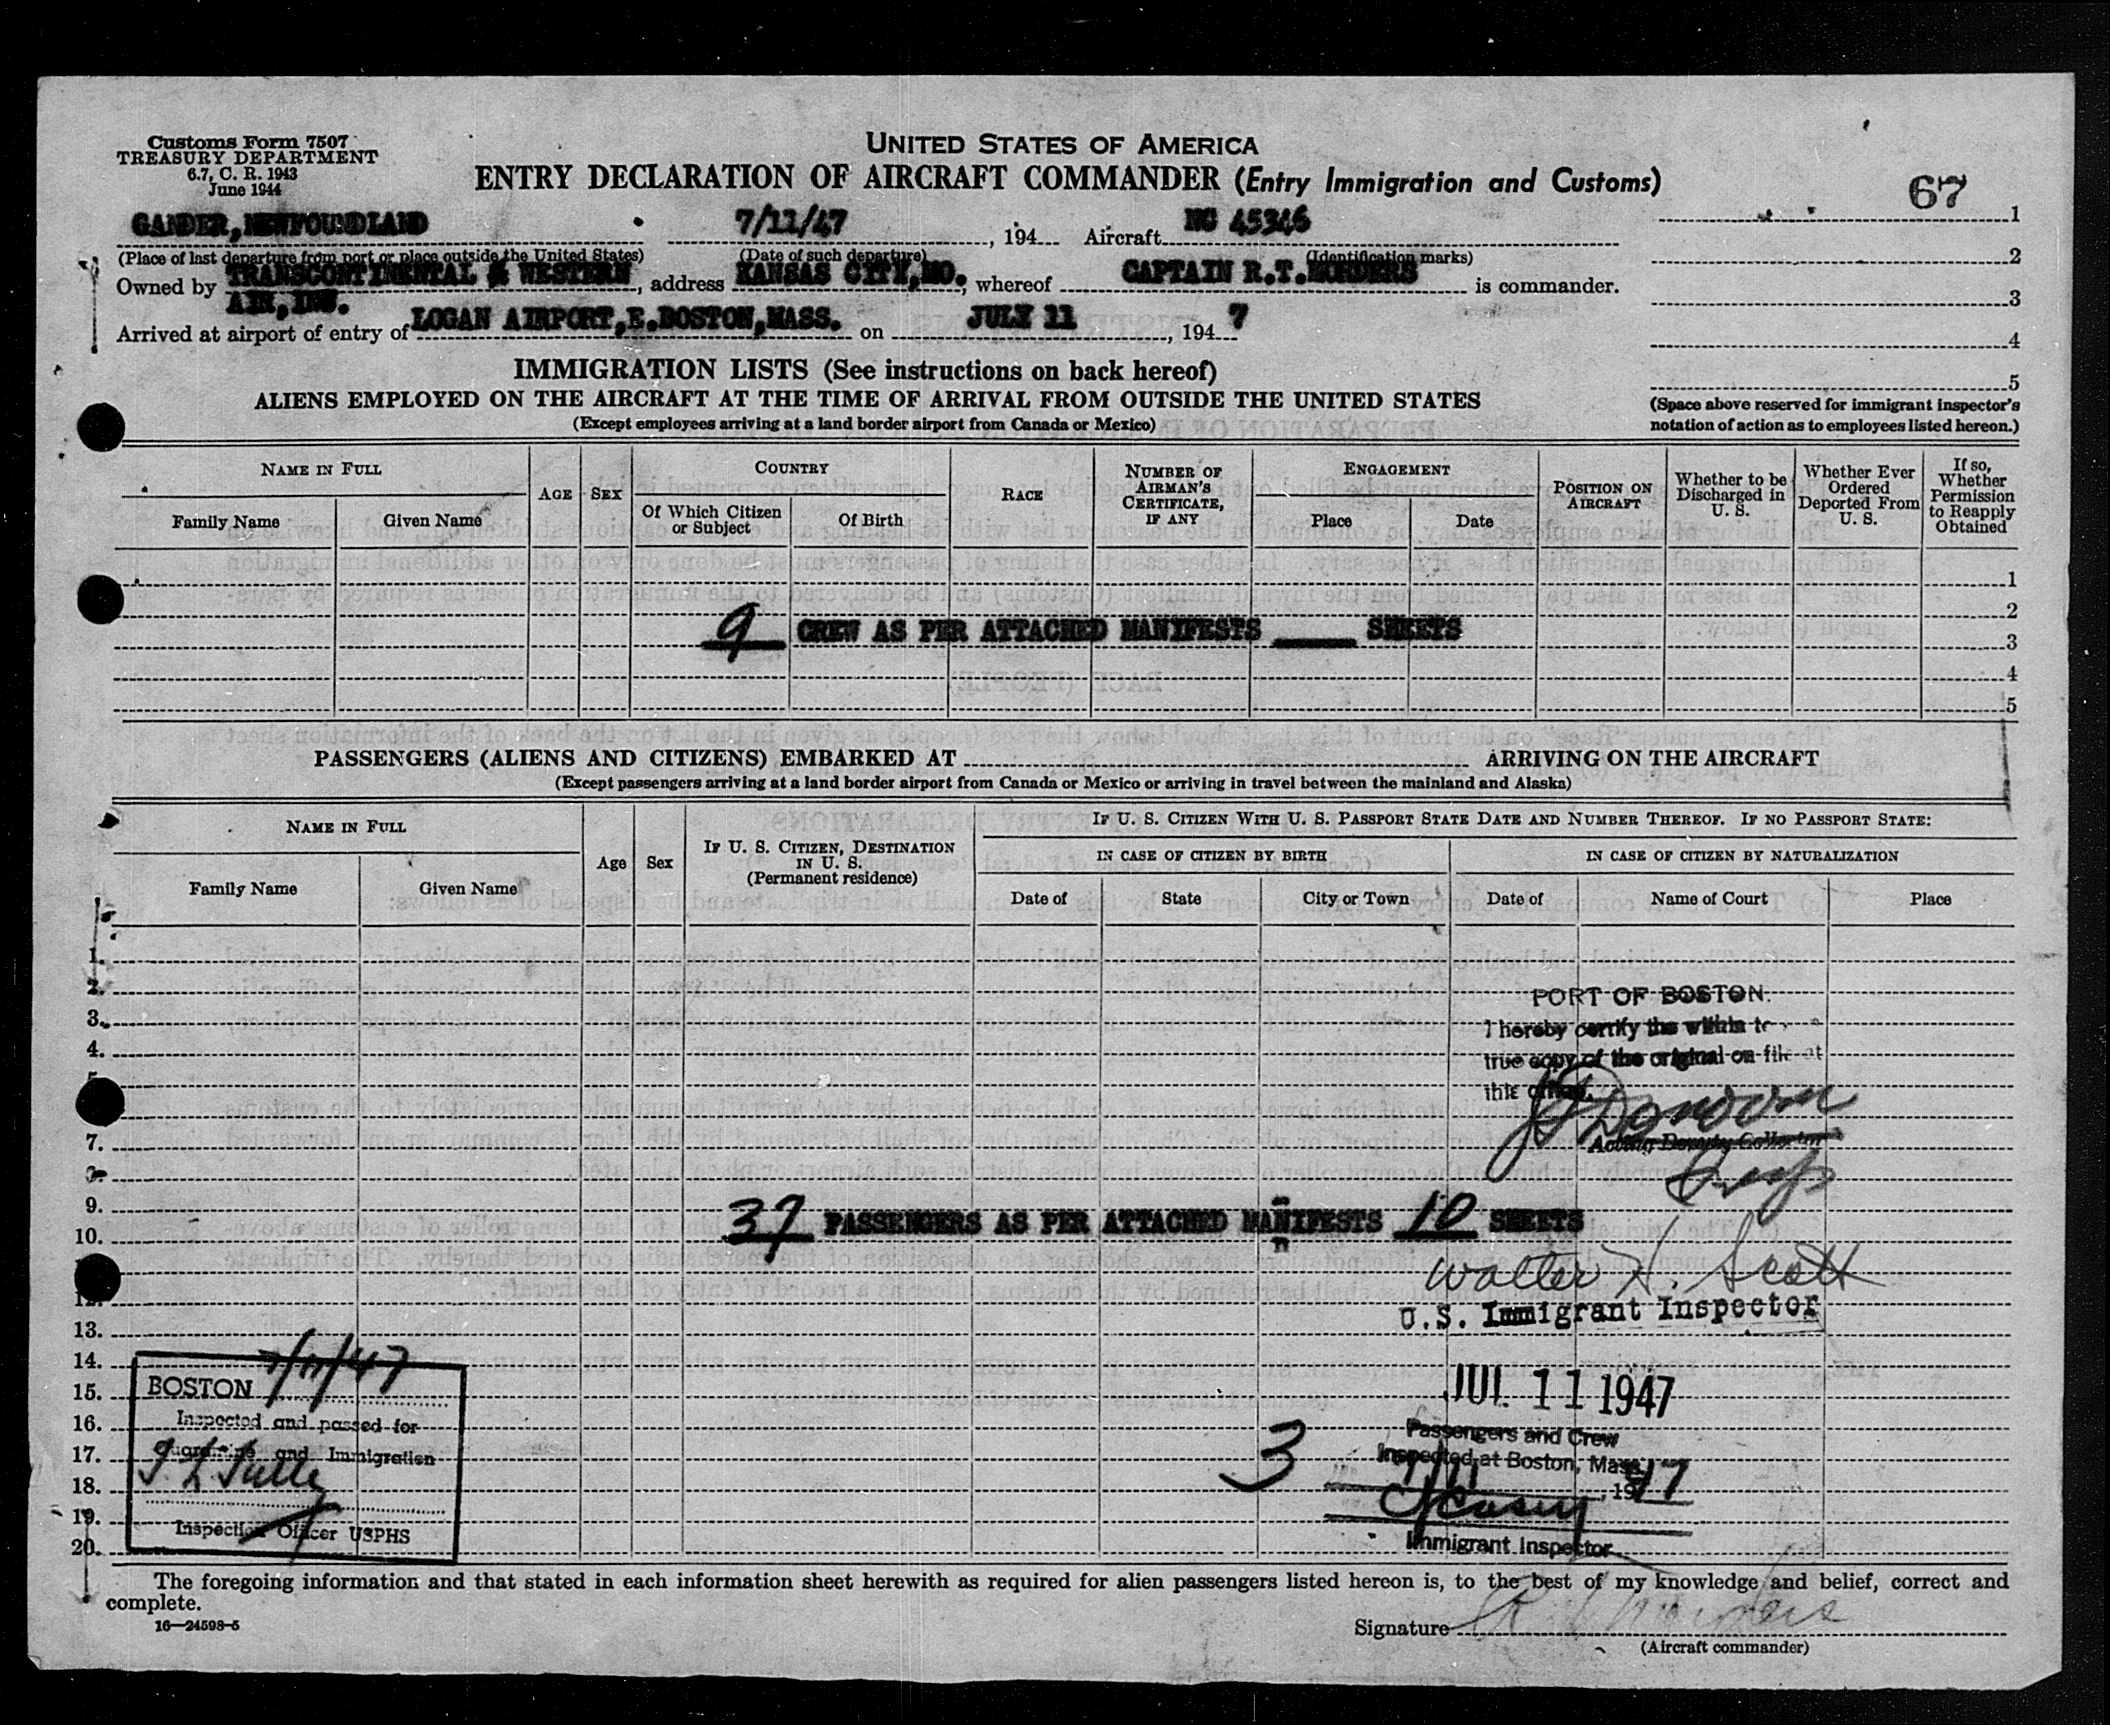 Customs Form 7507
TREASURY DEPARTMENT
6.7, C. R. 1943
June 1944
UNITED STATES OF AMERICA
ENTRY DECLARATION OF AIRCRAFT COMMANDER (Entry Immigration and Customs)
67
GANDER, NEWFOUNDLAND 7/11/47, 194 Aircraft NC 45346
(Place of last departure from port or place outside the United States) (Date of such departure) (Identification marks)
Owned by TRANSCONTINENTAL & WESTERN AIR, INC., address KANSAS CITY, MO., whereof CAPTAIN R.T. is commander.
Arrived at airport of entry of LOGAN AIRPORT, E. BOSTON, MASS. on JULY 11, 1947
1
2
3
4
5
(Space above reserved for immigrant inspector's
notation of action as to employees listed hereon.)
IMMIGRATION LISTS (See instructions on back hereof)
ALIENS EMPLOYED ON THE AIRCRAFT AT THE TIME OF ARRIVAL FROM OUTSIDE THE UNITED STATES
(Except employees arriving at a land border airport from Canada or Mexico)
NAME IN FULL
Family Name Given Name
AGE SEX
COUNTRY
Of Which Citizen or Subject Of Birth
RACE
NUMBER OF AIRMAN'S CERTIFICATE, IF ANY
ENGAGEMENT
Place Date
POSITION ON AIRCRAFT
Whether to be Discharged in U. S.
Whether Ever Ordered Deported From U. S.
If so, Whether Permission to Reapply Obtained
1
2
9 CREW AS PER ATTACHED MANIFESTS SHEETS
3
4
5
PASSENGERS (ALIENS AND CITIZENS) EMBARKED AT ARRIVING ON THE AIRCRAFT
(Except passengers arriving at a land border airport from Canada or Mexico or arriving in travel between the mainland and Alaska)
NAME IN FULL
Family Name Given Name
Age Sex
IF U. S. CITIZEN, DESTINATION IN U. S. (Permanent residence)
IF U. S. CITIZEN WITH U. S. PASSPORT STATE DATE AND NUMBER THEREOF. IF NO PASSPORT STATE:
IN CASE OF CITIZEN BY BIRTH IN CASE OF CITIZEN BY NATURALIZATION
Date of State City or Town Date of Name of Court Place
1.
2.
PORT OF BOSTON.
3.
I hereby certify the within to
4.
true copy of the original on file at
this office.
Donovan
7.
Acting Deputy Collector
Insp
9.
37 PASSENGERS AS PER ATTACHED MANIFESTS 10 SHEETS
10.
Walter H. Scott
12.
U.S. Immigrant Inspector
13.
14.
7/11/47
BOSTON
15.
JUL 11 1947
16.
Inspected and passed for
Passengers and Crew
17.
Quarantine and Immigration
3
Inspected at Boston, Mass.
18.
1947
19.
Inspection Officer USPHS
Immigrant Inspector
20.
The foregoing information and that stated in each information sheet herewith as required for alien passengers listed hereon is, to the best of my knowledge and belief, correct and
complete.
16—24598-5
Signature
(Aircraft commander)